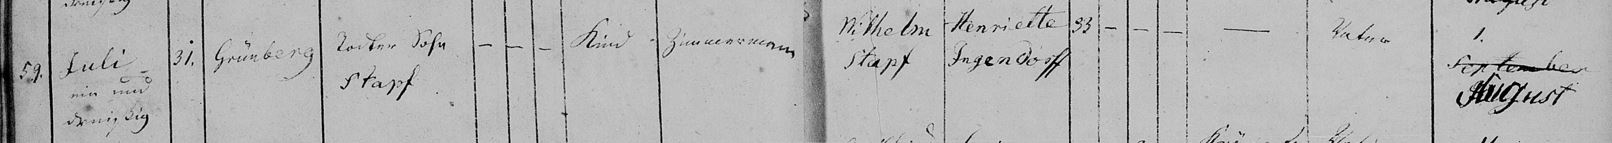 59. Juli 31. Grünberg Todter Sohn - - - Kind - Zimmermann Wilhelm Henriette 33 - - - — Vater 1.
ein und Stapf Stapf Ingendorff September
dreißig August